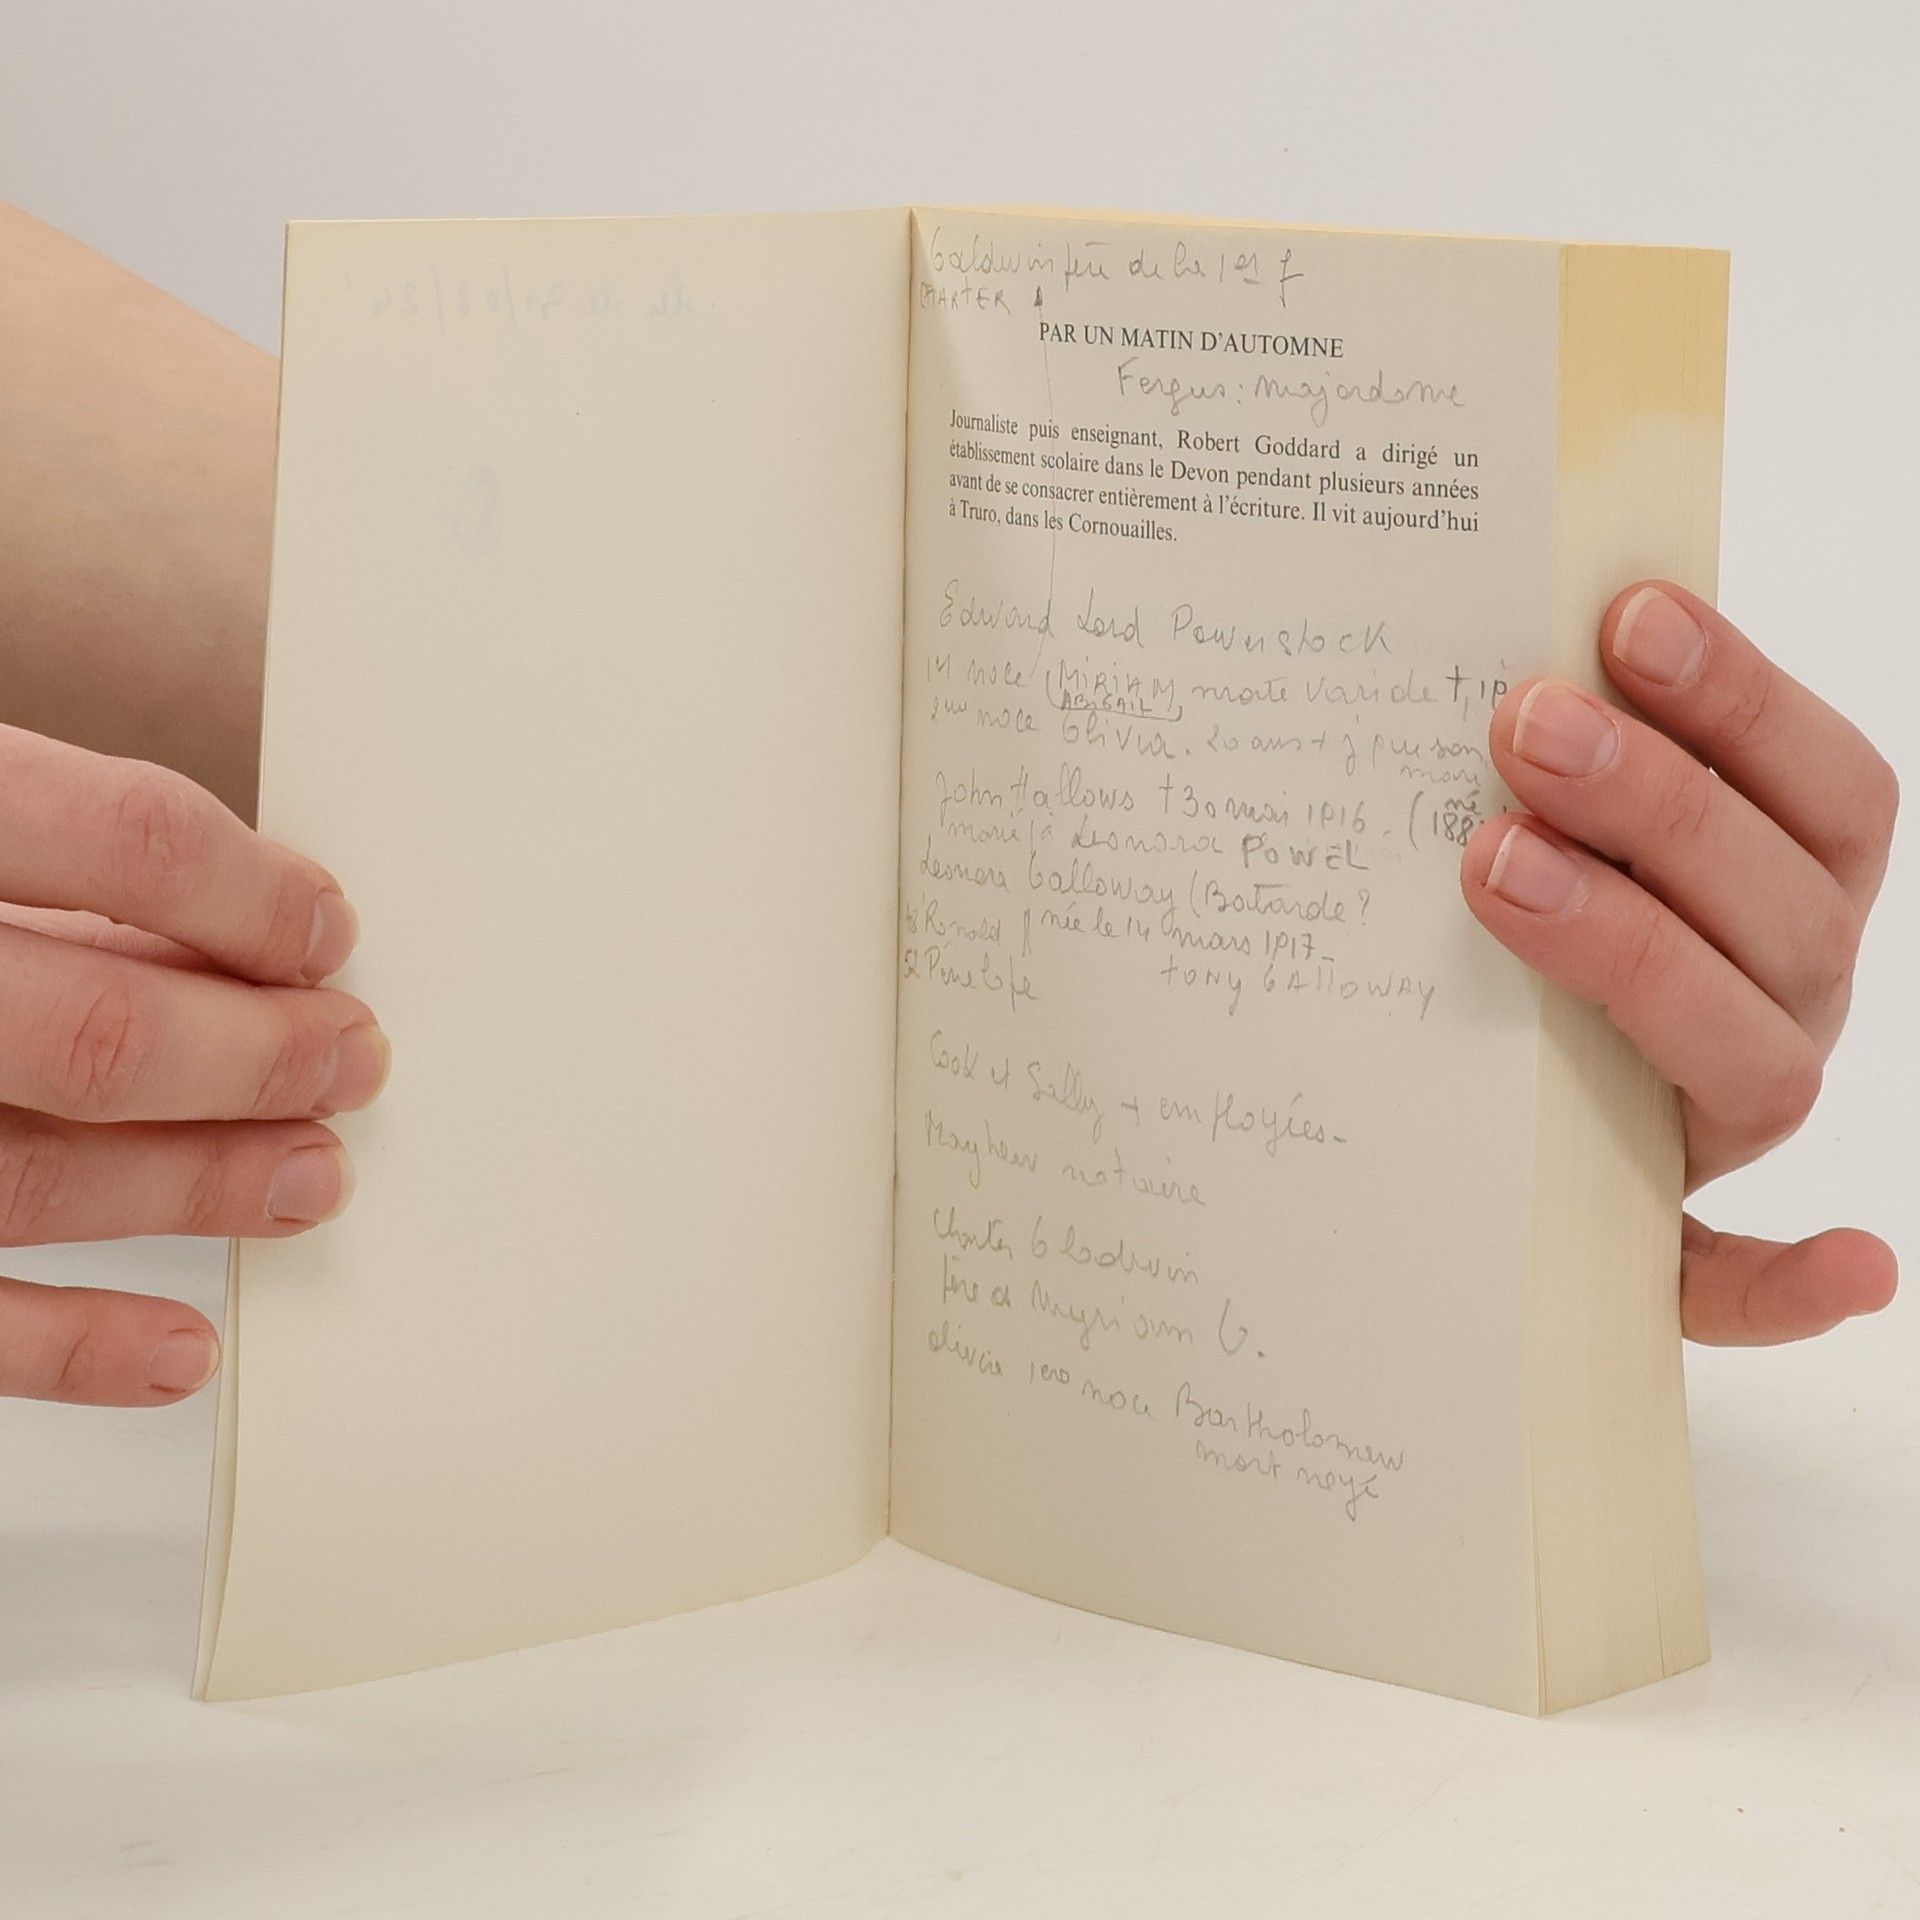 Galdwin père de la 1er f
CHARTER
PAR UN MATIN D'AUTOMNE
Fergus : majordome
Journaliste puis enseignant, Robert Goddard a dirigé un
établissement scolaire dans le Devon pendant plusieurs années
avant de se consacrer entièrement à l'écriture. Il vit aujourd'hui
à Truro, dans les Cornouailles.
Edward Lord Powerstock
1er noce (MIRIAM, morte de
ABIGAIL
2ème noce Olivia. 20 ans + j que son
mari
John Hallows † 30 mai 1916 (né
188
marié à Leonora POWEL
Leonora Galloway (Batarde ?
Ronald née le 14 mars 1917
52 Pénélope TONY GALLOWAY
Cook et Sally + employées
Mayhew notaire
Charter Gladwin
père de Myriam G.
Olivia 1ere noce Bartholomew
mort noyé